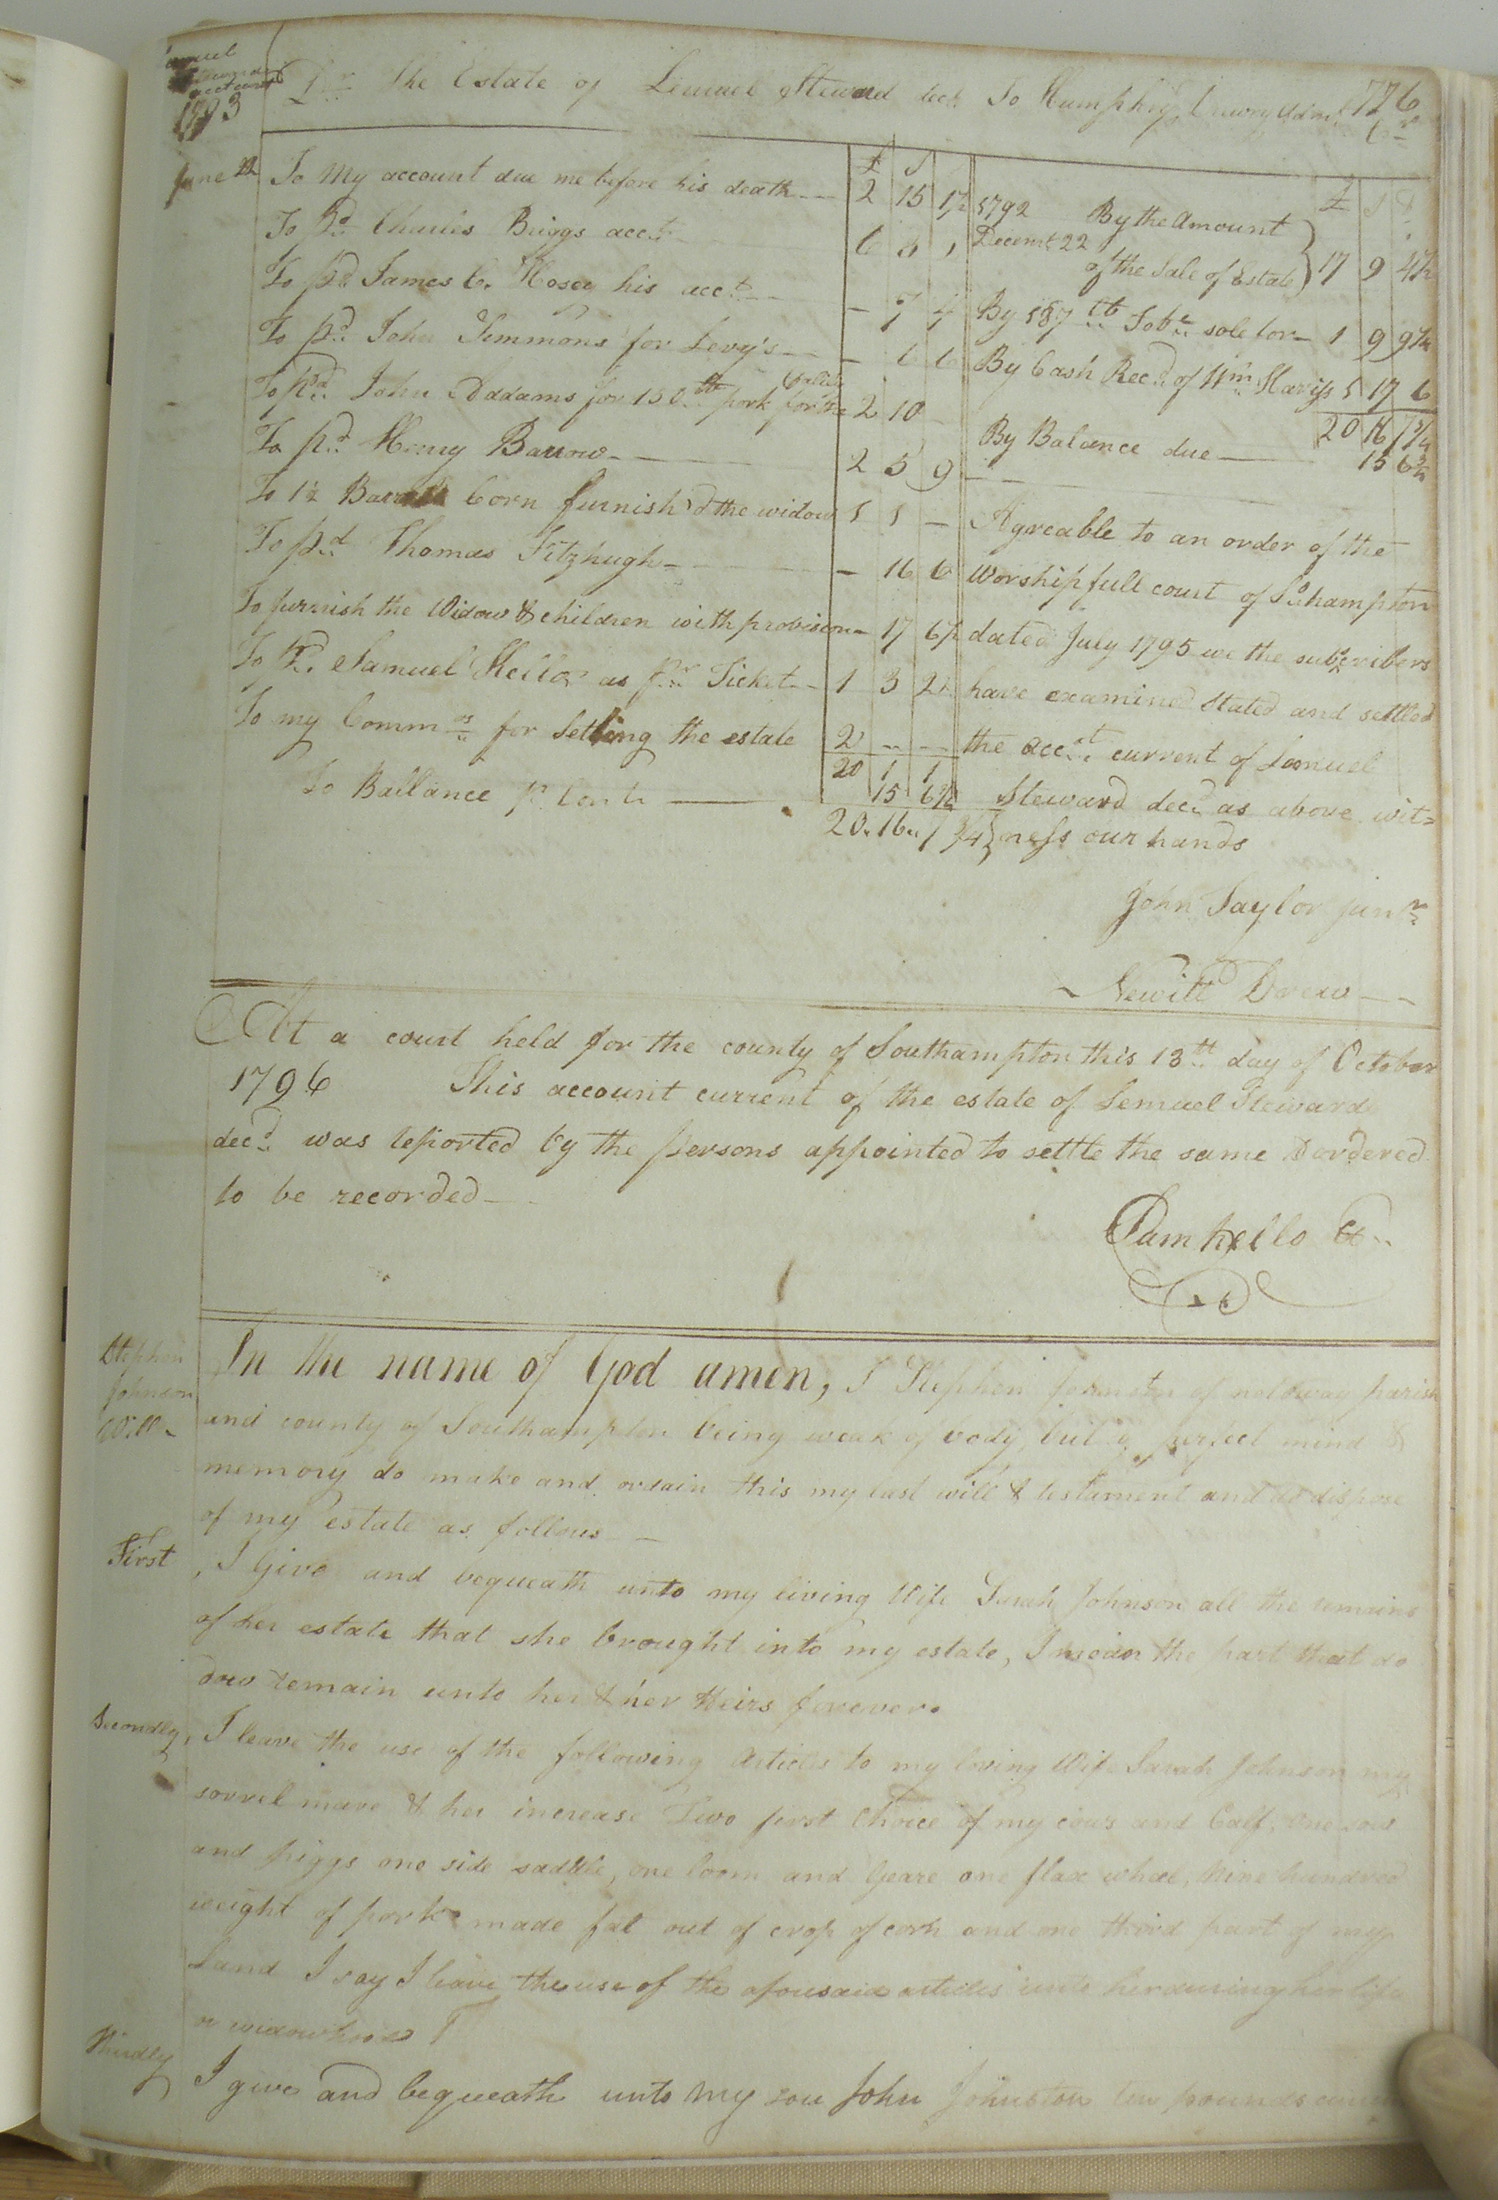 Lemuel
Steward
account
1793
Dr. The Estate of Lemuel Steward decd. To Humphry Drewry Admr. 776
Cr.
£ S
£ S D
June 22 To My account due me before his death 2 15 1½
1792 By the Amount
Decemr. 22
of the Sale of Estate } 17 9 4½
To Pd. Charles Briggs acct. 6 5 1
To pd. James C. his acct. - 7 4
By 187 lb Tobo. sole for 1 9 9¼
To pd. John Simmons for Levy's - 6 6
By Cash Recd. of Wm. Harris 1 17 6
20 16 7¾
To pd. John Addams for 150 lb pork for the family 2 10 -
By Balance due 15 6¾
To pd. Henry Barrow 2 5 9
To 1½ Barrell Corn furnish'd the widow 1 1 -
Agreable to an order of the
To pd. Thomas Fitzhugh - 16 6
Worshipfull court of So.hampton
To furnish the Widow & children with provision - 17 6½
dated July 1795 we the subscribers
To Pd. Samuel Kello as pr. Ticket 1 3 2½
have examined Stated and settled
To my Commns. for Setling the estate 2 - -
the acct. current of Lemuel
20 1 1
To Ballance pr. Contr. 15 6¾
Steward decd. as above wit=
20. 16. 7 ¾ } ness our hands
John Taylor junr.
Newitt Drew
At a court held for the county of Southampton this 13th. day of October
1796 This account current of the estate of Lemuel Steward
decd. was reported by the persons appointed to settle the same & ordered
to be recorded
Sam Kello Ct.
Stephen
Johnson
Will
In the name of God amen, I Stephen Johnston of notoway parish
and county of Southampton being weak of body, but of perfect mind &
memory do make and ordain this my last will & testament and do dispose
of my estate as follows
First, I Give and bequeath unto my living Wife Sarah Johnson all the remains
of her estate that she brought into my estate, I mean the part that do
now remain unto her & her Heirs forever.
Secondly, I leave the use of the following Articles to my loving Wife Sarah Johnson my
sorrel mare & her increase Two first Choice of my cows and Calf, one sow
and piggs one side saddle, one loom and Geare one flax wheel, Nine hundred
weight of pork made fat out of crop of corn and one third part of my
Land I say I leave the use of the aforesaid articles unto her during her life
or widowhood
Thirdly I give and bequeath unto my son John Johnston ten pounds